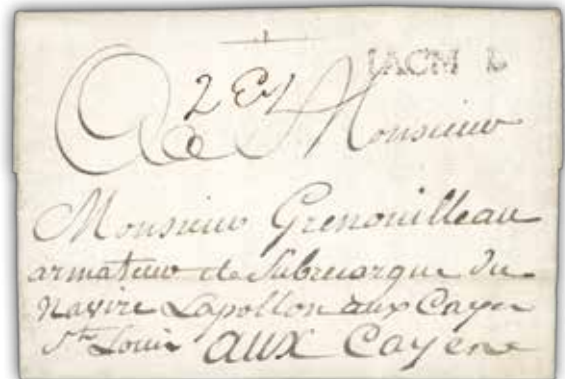 JACM L
A Monsieur
Monsieur Grenouilleau
armateur et Subrecargue du
Navire Lapollon aux Cayes
St. Louis aux Cayene